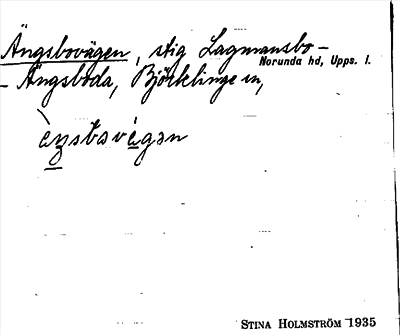 Ängsbovägen, stig Lagmansbo-
Norunda hd, Upps. l.
- Ängsboda, Björklinge sn,
èŋsbovègən
STINA HOLMSTRÖM 1935